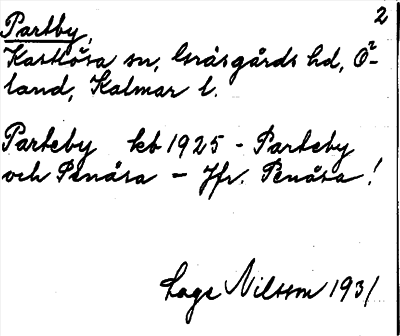 2
Partby,
Kastlösa sn, Gräsgårds hd, Ö-
land, Kalmar l.
Parteby kb 1925 - Parteby
och Penåsa - Jfr. Penåsa!
Lage Nilsson 1931